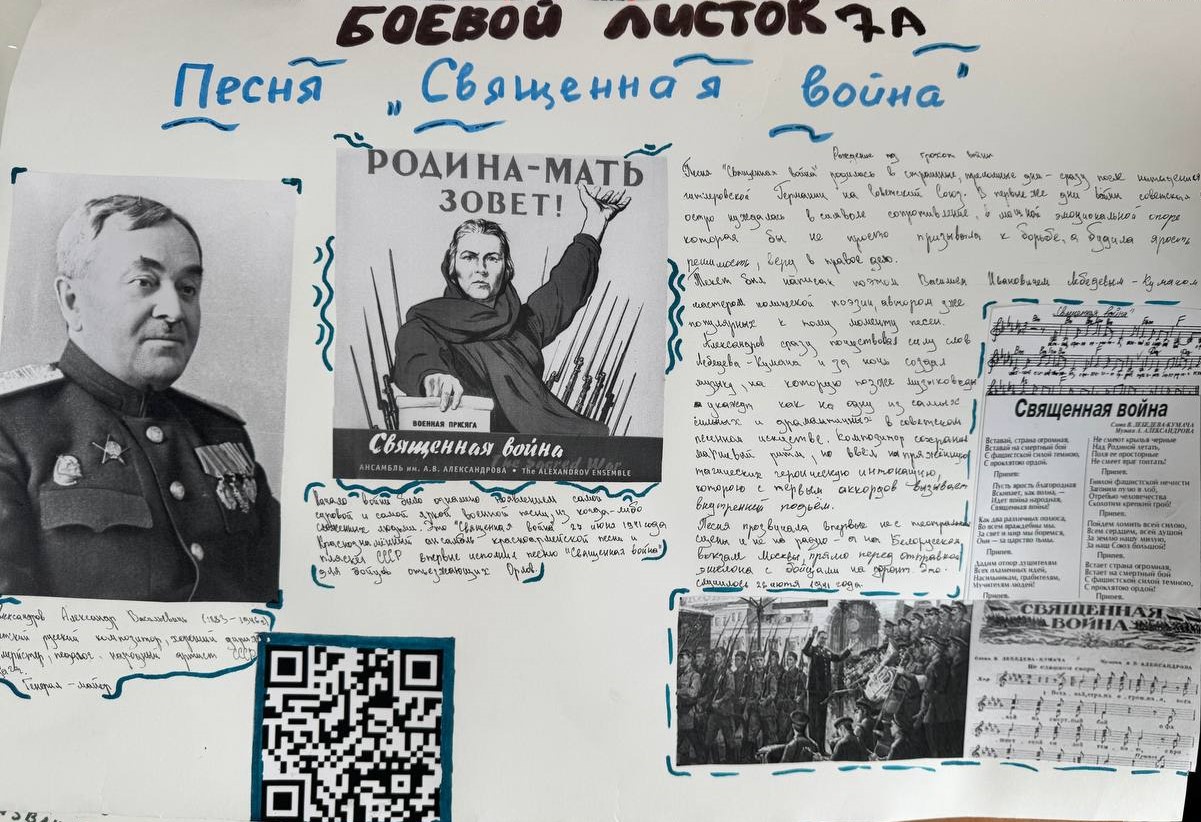 БОЕВОЙ ЛИСТОК 7А
Песня „Священная война"
РОДИНА-МАТЬ
ЗОВЕТ!
ВОЕННАЯ ПРИСЯГА
Священная война
АНСАМБЛЬ им. А.В. АЛЕКСАНДРОВА • The ALEXANDROV ENSEMBLE
Начало войны было
суровой и самой яркой военной песни, из когда-либо
людьми. Это "Священная война" 27 июня 1941 года
Краснознамённый ансамбль красноармейской песни и
пляски СССР впервые исполнил песню "Священная война"
для бойцов
Александр Васильевич (1883-1946)
русский композитор,
педагог. народный артист СССР
Генерал-майор
Рождение под грохот войны
Песня "Священная война" родилась в страшные, тревожные дни - сразу после нападения
гитлеровской Германии на Советский Союз. В первые же дни войны советская
остро нуждалась в символе сопротивления, в мощной эмоциональной
которая бы не просто призывала к борьбе, а будила ярость
решимость, веру в правое дело.
Текст был написан поэтом Василием Ивановичем Лебедевым-Кумачом
мастером поэзии, автором уже
популярных к тому моменту песен.
Александров сразу почувствовал силу слов
Лебедева-Кумача и за ночь создал
музыку, на которую позже музыковеды
укажут как на одну из самых
сильных и драматичных в советском
песенном искусстве. Композитор сохранил
маршевый ритм, но ввёл
героическую интонацию,
которую с первых аккордов вызывает
внутренний подъём.
Песня прозвучала впервые не с театральной
сцены и не на радио - а на Белорусском
вокзале Москвы, прямо перед отправкой
эшелона с бойцами на фронт. Это
случилось 1941 года.
"Священная война"
Священная война
Слова В. ЛЕБЕДЕВА-КУМАЧА
Музыка А. АЛЕКСАНДРОВА
Вставай, страна огромная,
Вставай на смертный бой
С фашистской силой темною,
С проклятою ордой.
Припев:
Пусть ярость благородная
Вскипает, как волна, —
Идет война народная,
Священная война!
Как два различных полюса,
Во всем враждебны мы.
За свет и мир мы боремся,
Они — за царство тьмы.
Припев.
Дадим отпор душителям
Всех пламенных идей,
Насильникам, грабителям,
Мучителям людей!
Припев.
Не смеют крылья черные
Над Родиной летать,
Поля ее просторные
Не смеет враг топтать!
Припев.
Гнилой фашистской нечисти
Загоним пулю в лоб,
Отребью человечества
Сколотим крепкий гроб!
Припев.
Пойдем ломить всей силою,
Всем сердцем, всей душой
За землю нашу милую,
За наш Союз большой!
Припев.
Встает страна огромная,
Встает на смертный бой
С фашистской силой темною,
С проклятою ордой!
Припев.
СВЯЩЕННАЯ
ВОЙНА
Слова В. ЛЕБЕДЕВА-КУМАЧА
Музыка А. В. АЛЕКСАНДРОВА